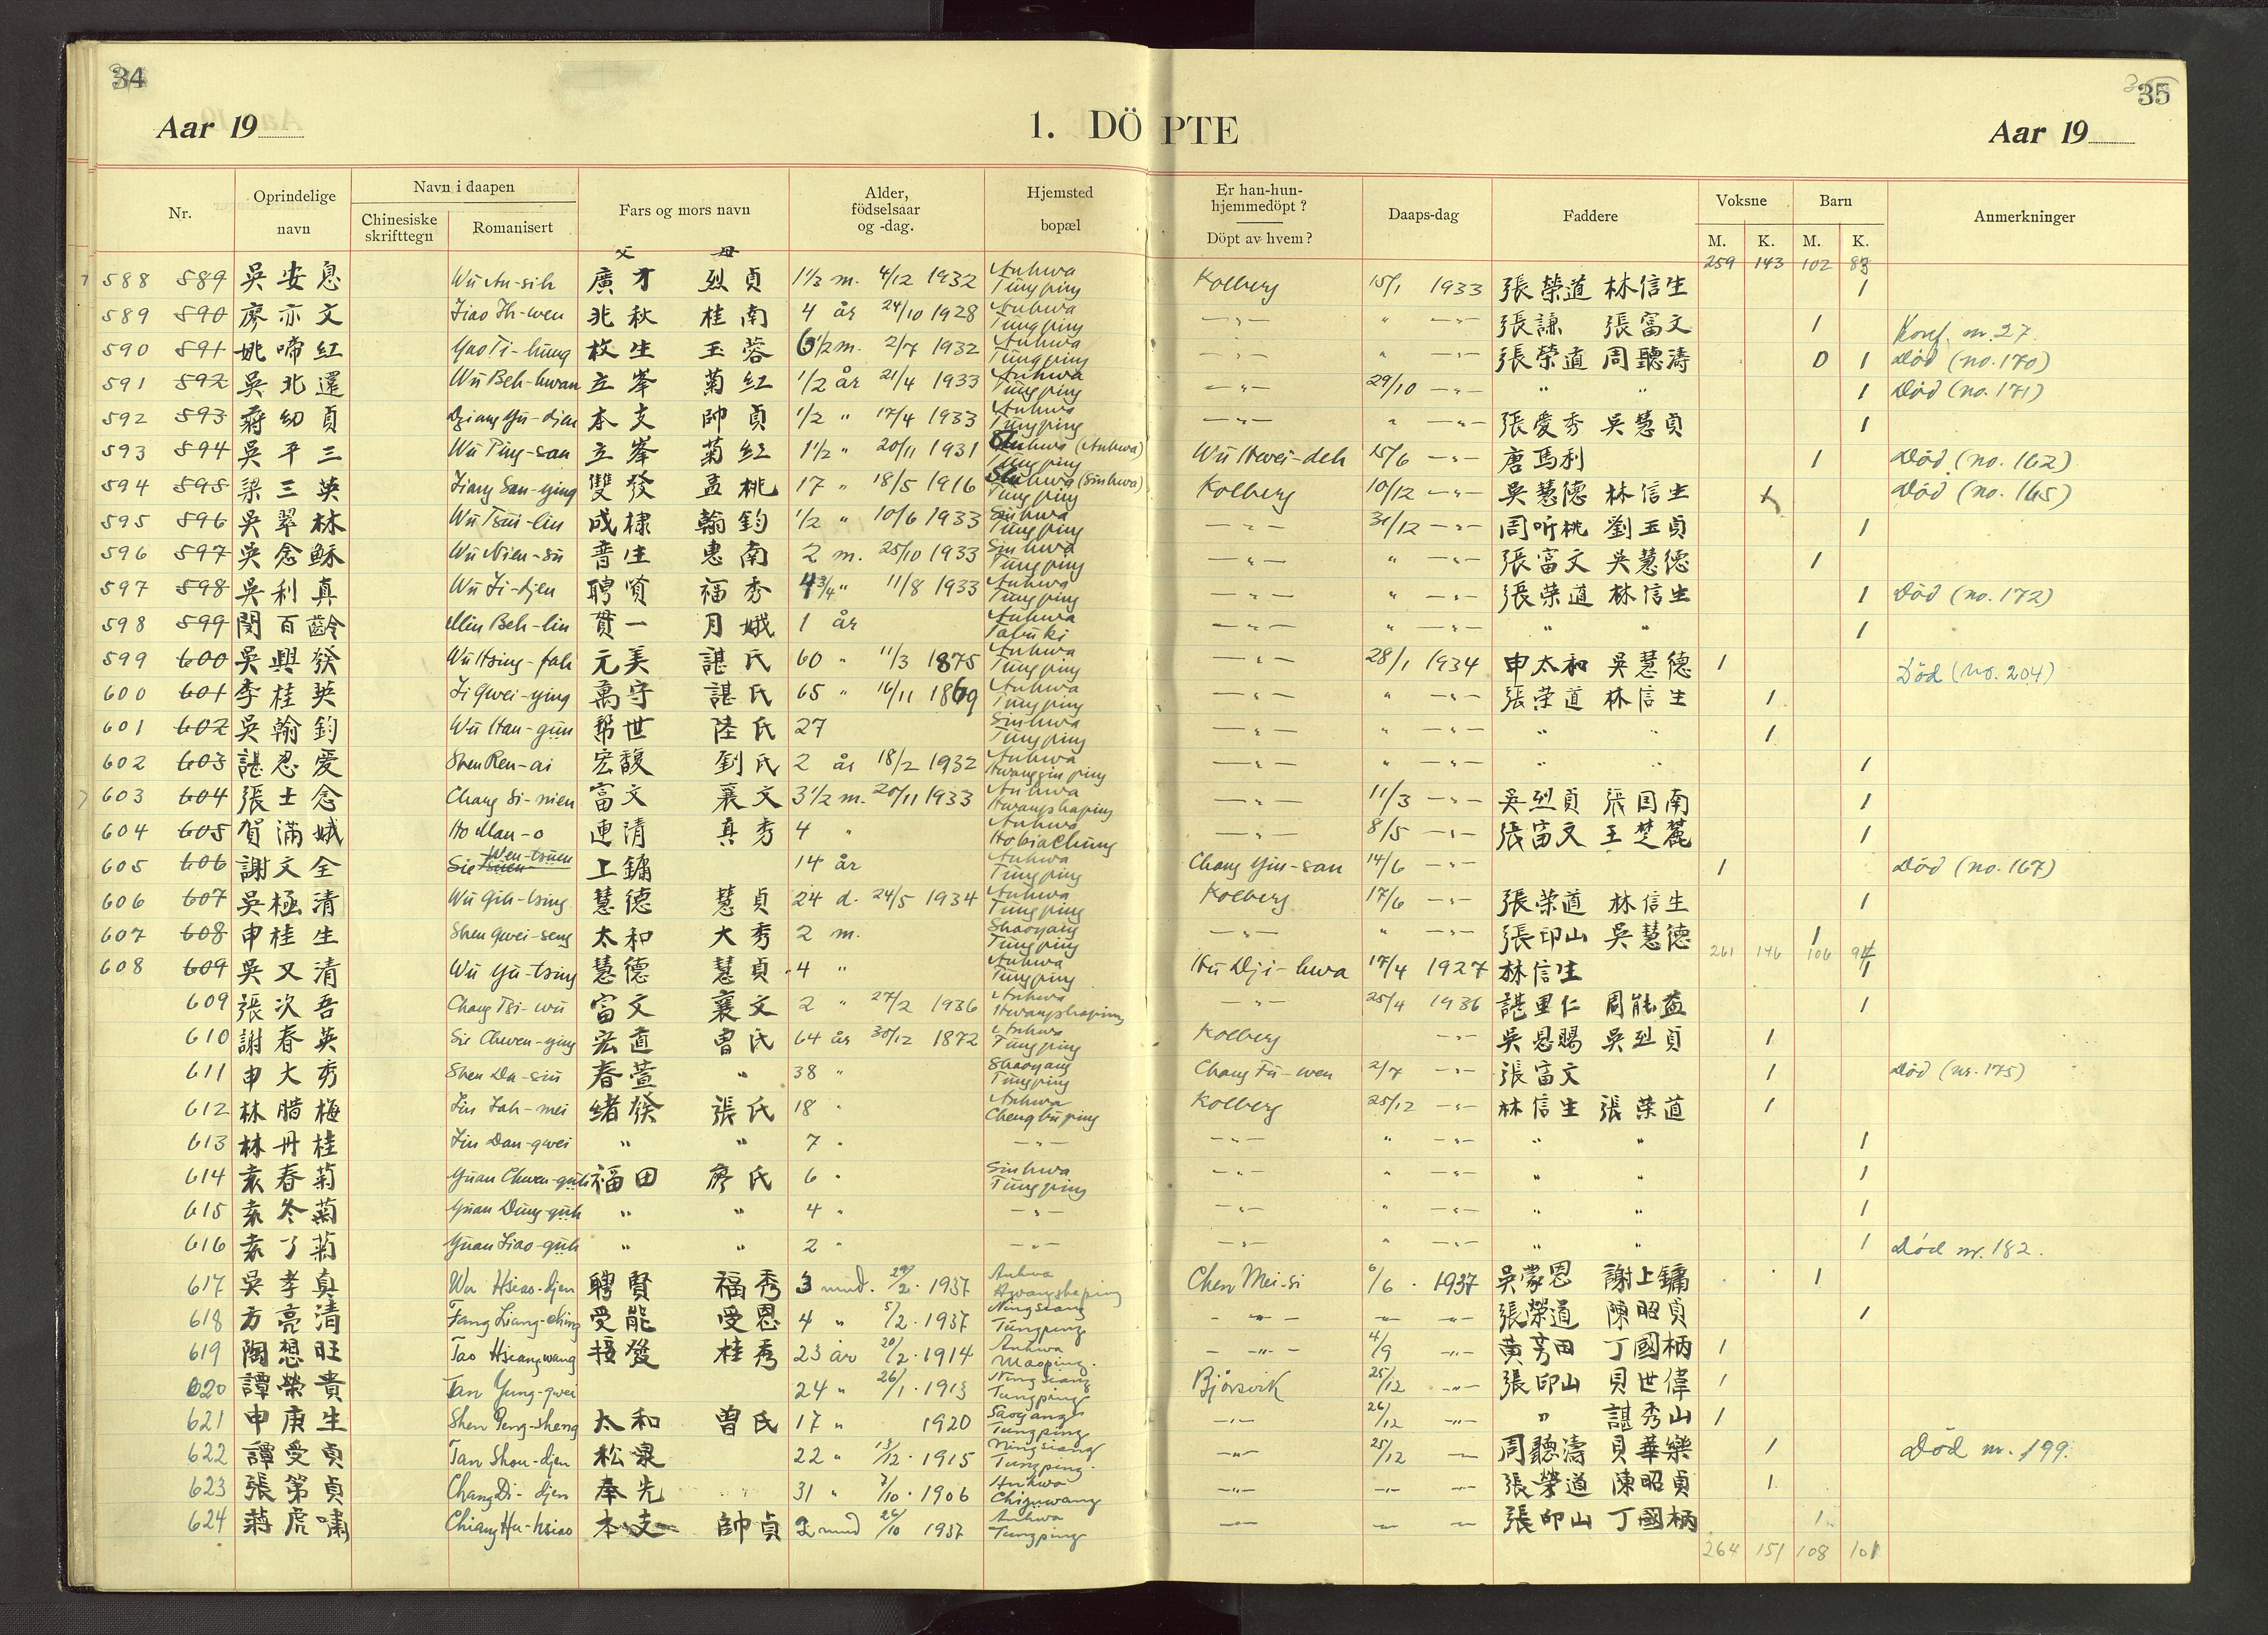 34
35
Aar 19
1. DÖPTE
Aar 19
Nr. Oprindelige navn Navn i daapen Chinesiske skrifttegn Romanisert Fars og mors navn Alder, födselsaar og -dag. Hjemsted bopæl Er han-hun-hjemmedöpt? Döpt av hvem? Daaps-dag Faddere Voksne M. K. Barn M. K. Anmerkninger
父 母 259 143 102 83
588 589 吳安息 Wu An-sih 廣才 烈貞 1 1/3 m. 4/12 1932 Anhwa Tungping Kolberg 15/1 1933 張榮道 林信生 1
589 590 廖亦文 Liao Ih-wen 兆秋 桂南 4 år 24/10 1928 Anhwa Tungping —"— " —"— 張謙 張富文 1 Konf. nr. 27.
590 591 姚啼紅 Yao Ti-hung 枚生 玉蓉 6 1/2 m. 2/7 1932 Anhwa Tungping —"— " —"— 張榮道 周聽濤 0 1 Död (no. 170)
591 592 吳北還 Wu Beh-hwan 立峯 菊红 1/2 år 21/4 1933 Anhwa Tungping —"— 29/10 —"— " " 1 Död (no. 171)
592 593 蔣幼貞 Dziang Yu-djen 本支 帥貞 1/2 " 17/4 1933 Anhwa Tungping —"— " —"— 張愛秀 吳慧貞 1
593 594 吳平三 Wu Ping-san 立峯 菊红 1 1/2 " 20/11 1931 (Anhwa) Tungping Wu Hwei-deh 15/6 —"— 唐馬利 1 Död (no. 162)
594 595 梁三英 Liang San-ying 雙發 孟桃 17 " 18/5 1916 (Sinhwa) Tungping Kolberg 10/12 —"— 吳慧德 林信生 Död (no. 165)
595 596 吳翠林 Wu Tsui-lin 成棣 翰鈞 1/2 " 10/6 1933 Sinhwa Tungping —"— 31/12 —"— 周听桃 劉玉貞 1
596 597 吳念穌 Wu Nien-su 晋生 惠南 2 m. 25/10 1933 Sinhwa Tungping —"— " —"— 張富文 吳慧德 1
597 598 吳利真 Wu Li-djen 聘賢 福秀 4 3/4 " 11/8 1933 Anhwa Tungping —"— " —"— 張荣道 林信生 1 Död (no. 172)
598 599 閔百齡 Min Beh-lin 貫一 月娥 1 år Anhwa Tabuki —"— " —"— " " 1
599 600 吳興發 Wu Hsing-fah 元美 諶氏 60 " 11/3 1875 Anhwa Tungping —"— 28/1 1934 申太和 吳慧德 1 Död (no. 204)
600 601 李桂英 Li Gwei-ying 萬守 諶氏 65 " 16/11 1869 Anhwa Tungping —"— " —"— 張荣道 林信生 1
601 602 吳翰鈞 Wu Han-gün 幇世 陸氏 27 Sinhwa Tungping —"— " —"— " " 1
602 603 諶忍愛 Shen Ren-ai 宏馥 劉氏 2 år 18/2 1932 Anhwa —"— " —"— " " 1
603 604 張士念 Chang Si-nien 富文 襄文 3 1/2 m. 20/11 1933 Anhwa Hwangshaping —"— 11/3 —"— 吳烈貞 張国南 1
604 605 賀滿娥 Ho Man-o 連清 真秀 4 " Anhwa Hobiachung —"— 8/5 —"— 張富文 王楚麓 1
605 606 謝文全 Sie Wen-tsuen 上鏞 14 år Anhwa Tungping Chang Yin-san 14/6 —"— 1 Död (no. 167)
606 607 吳極清 Wu Gih-tsing 慧德 慧貞 24 d. 24/5 1934 Anhwa Tungping Kolberg 17/6 —"— 張荣道 林信生 1
607 608 申桂生 Shen Gwei-seng 太和 大秀 2 m. Shaoyang Tungping —"— " —"— 張印山 吳慧德 1
261 146 106 94
608 609 吳又清 Wu Yu-tsing 慧德 慧貞 4 " Anhwa Tungping Hu Dji-hwa 17/4 1927 林信生 1
609 張次吾 Chang Tsi-wu 富文 襄文 2 " 27/2 1936 Anhwa Hwangshaping —"— 25/4 1936 諶里仁 周能益 1
610 謝春英 Sie Chwen-ying 宏道 曾氏 64 år 30/12 1872 Anhwa Tungping Kolberg —"— 吳恩賜 吳烈貞 1
611 申大秀 Shen Da-siu 春萱 " 38 " Shaoyang Tungping Chang Fu-wen 2/7 —"— 張富文 1 Död (nr. 175)
612 林腊梅 Lin Lah-mei 緒發 張氏 18 " Anhwa Chengbuping Kolberg 25/12 —"— 林信生 張荣道 1
613 林丹桂 Lin Dan-gwei " " 7 " —"— —"— " —"— " " 1
614 袁春菊 Yuan Chwen-güh 福田 廖氏 6 " Sinhwa Tungping —"— " —"— " " 1
615 袁冬菊 Yuan Dung-güh " " 4 " —"— —"— " —"— " " 1
616 袁了菊 Yuan Liao-güh " " 2 " —"— —"— " —"— " " 1 Död nr. 182.
617 吳孝真 Wu Hsiao-djen 聘賢 福秀 3 mnd. 29/2 1937 Anhwa Hwangshaping Chen Mei-si 6/6 1937 吳蒙恩 謝上鏞 1
618 方亮清 Fang Liang-ching 受能 受恩 4 " 5/2 1937 Ningsiang Tungping —"— — —"— 張榮道 陳昭貞 1
619 陶想旺 Tao Hsiang-wang 接發 桂秀 23 år 20/2 1914 Anhwa Maoping. —"— 4/9 —"— 黃芳田 丁國柄 1
620 譚榮貴 Tan Yung-gwei 24 " 26/1 1913 Ningsiang Tungping Bjørsvik 25/12 —"— 張印山 貝世偉 1
621 申庚生 Shen Geng-sheng 太和 曾氏 17 " 1920 Saoyang Tungping —"— 26/12 —"— " 諶秀山 1
622 譚受貞 Tan Shou-djen 松泉 22 " 13/12 1915 Ningsiang Tungping —"— 25/12 — 周聽濤 貝華樂 1 Död nr. 199.
623 張第貞 Chang Di-djen 奉先 31 " 7/10 1906 Anhwa —"— —"— —"— 張榮道 陳昭貞 1
624 蔣虎嘯 Chiang Hu-hsiao 本支 帥貞 2 mnd 26/10 1937 Anhwa Tungping —"— — — 張印山 丁國柄 1
264 151 108 101